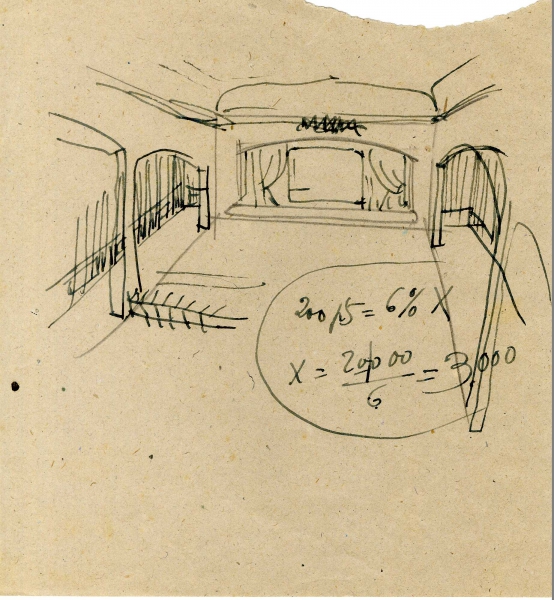 200 ps = 6% X
X = 20000 = 3,000
6